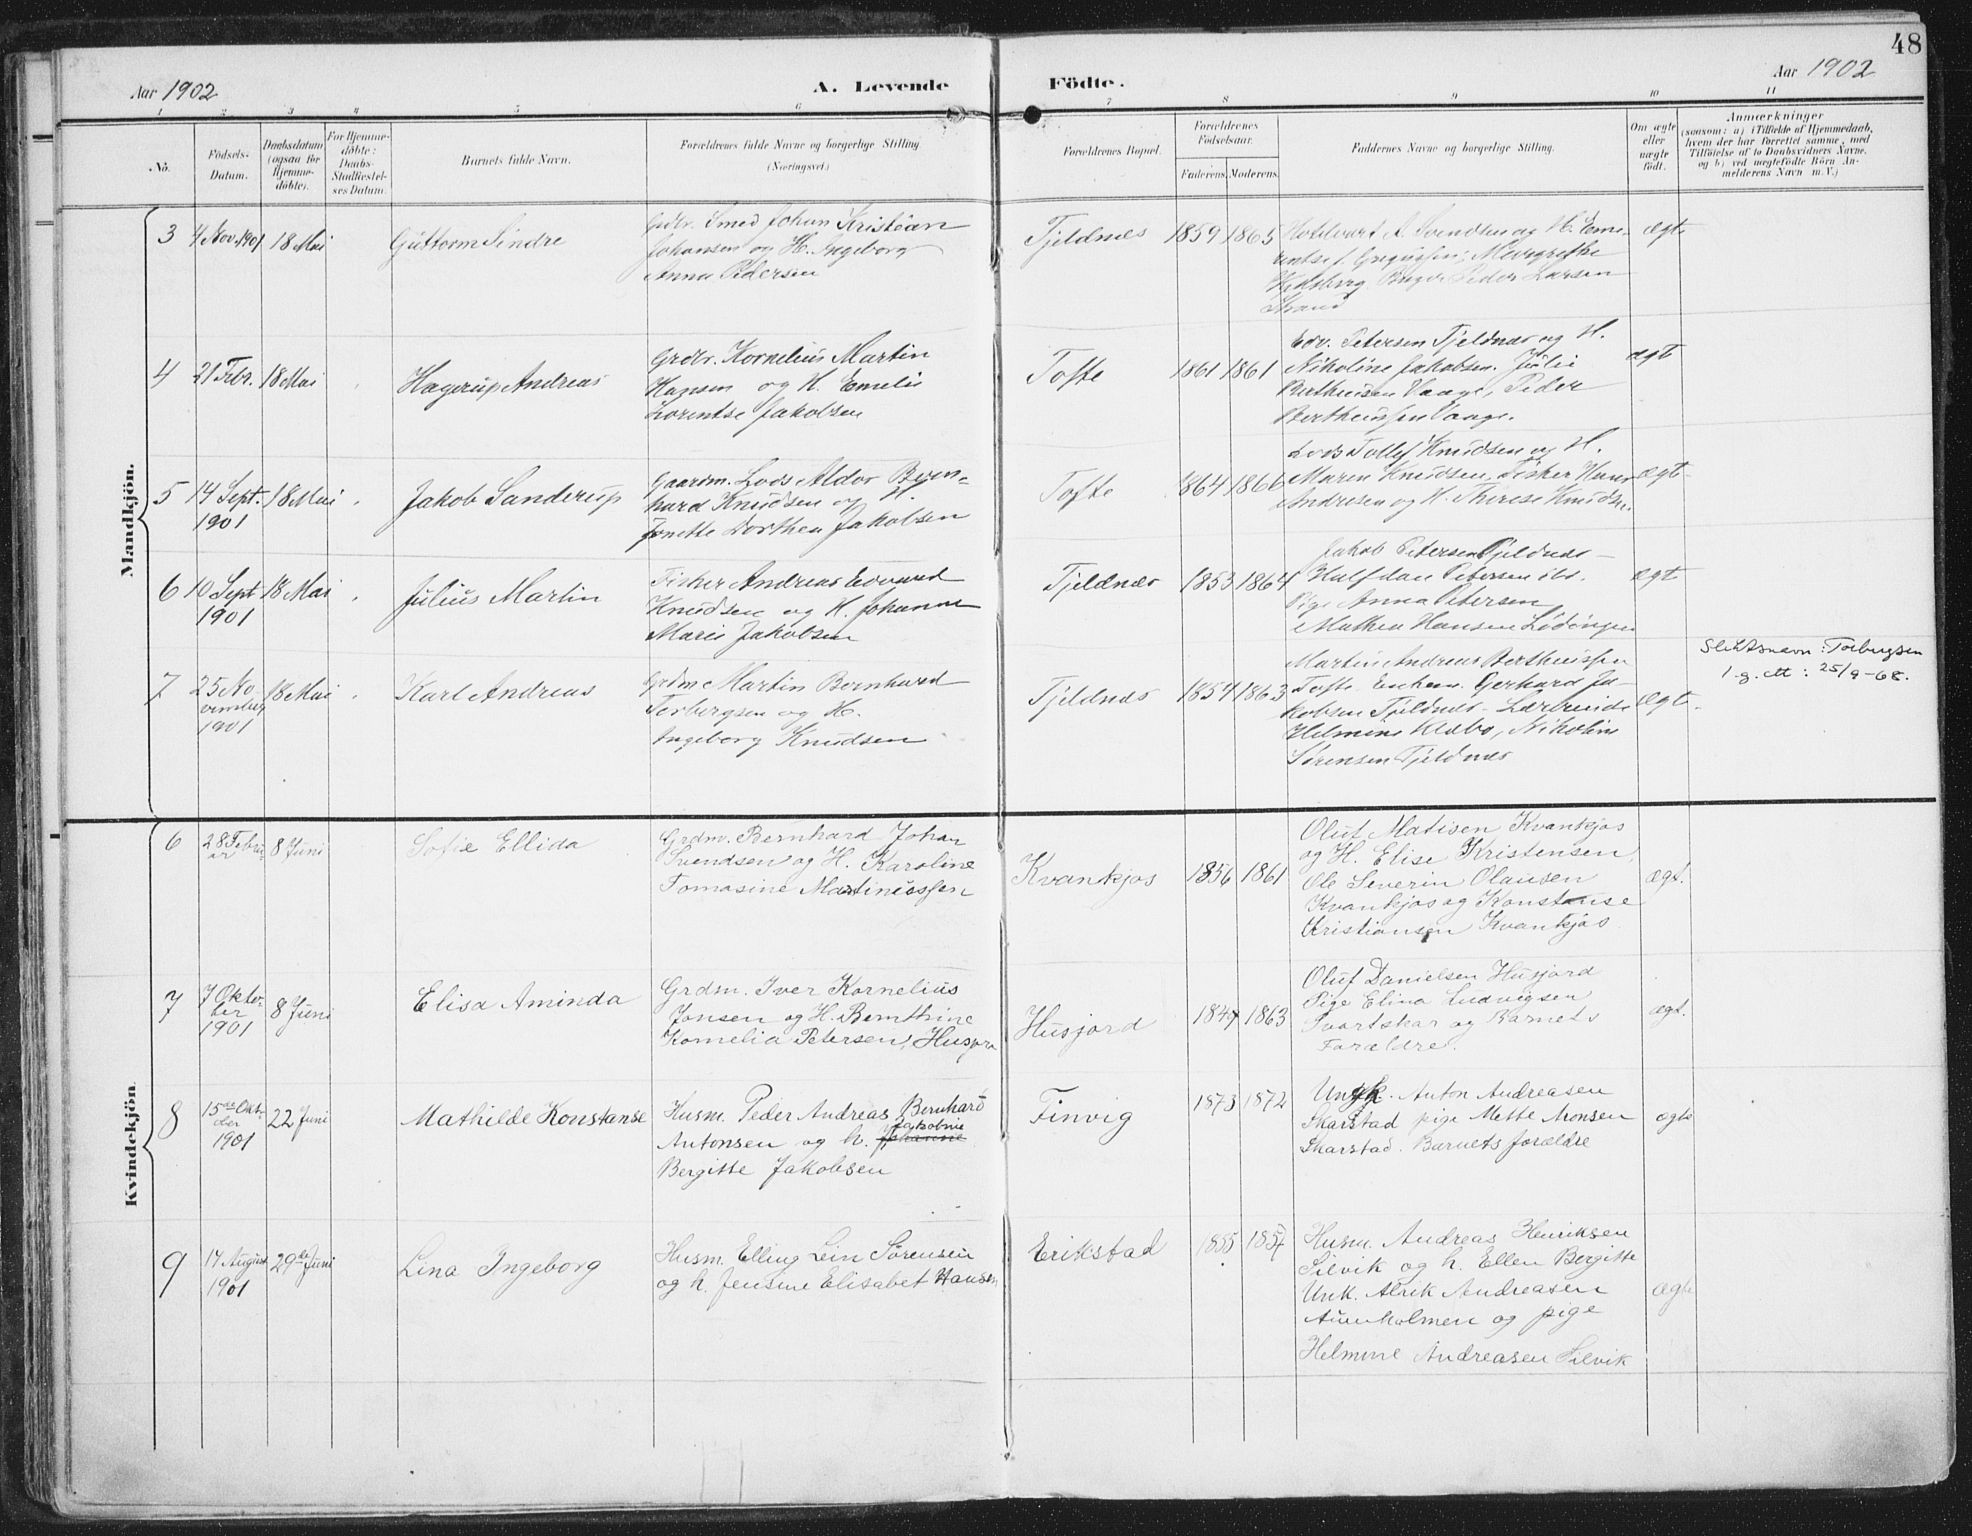 48
Aar 1902
A. Levende
Födte.
Aar 1902
1 2 3 4 5 6 7 8 9 10 11
No.
Födsels-
Datum.
Daabsdatum
(ogsaa for
Hjemme-
döbte).
For Hjemme-
döbte:
Daabs-
Stadfæstel-
ses Datum.
Barnets fulde Navn.
Forældrenes fulde Navne og borgerlige Stilling.
(Næringsvei.)
Forældrenes Bopæl.
Forældrenes
Födselsaar.
Faderens. Moderens.
Faddernes Navne og borgerlige Stilling.
Om ægte
eller
uægte
födt.
Anmærkninger
(saasom: a) i Tilfælde af Hjemmedaab,
hvem der har forrettet samme, med
Tilföielse af to Daabsvidners Navne,
og b) ved uegtefödte Börn An-
melderens Navn m. V.)
Mandkjön.
3
4 Nov. 1901
18 Mai
Guttorm Sindre
Grdbr. Smed Johan Kristian
Johansen og H. Ingeborg
Anna Pedersen
Tjeldnæs
1859
1865
Svendsen og H.
Peder Larsen
Strand
ægte
4
21 Febr.
18 Mai
Hagerup Andreas
Grdbr. Kornelius Martin
Hansen og H. Emelie
Lorentse Jakobsen
Tofte
1861
1861
Edv. Petersen Tjeldnæs og H.
Nikoline Jakobsen. Julie
Bertheussen Vaage, Peder
Bertheussen Vaage.
ægt
5
14 Sept.
1901
18 Mai
Jakob Sanderup
Gaardm. Lods Aldor Bern-
hard Knudsen og H.
Jonette Dorthea Jakobsen
Tofte
1864
1866
Lods Tollef Knudsen og H.
Maren Knudsen, Fisker Hans
Andresen og H. Therese Knudsen
ægt
6
10 Sept
1901
18 Mai
Julius Martin
Fisker Andreas Edvard
Knudsen og H. Johanne
Marie Jakobsen
Tjeldnæs
1853
1864
Jakob Petersen Tjeldnæs
Halfdan Petersen ibd.
Pige Anna Petersen
Mathea Hansen Lødingen
ægt
7
25 No-
vember
1901
18 Mai
Karl Andreas
Grdm Martin Bernhard
Torbergsen og H.
Ingeborg Knudsen
Tjeldnæs
1854
1863
Martin Andreas Bertheussen
Tofte. Enkem. Gerhard Ja-
kobsen Tjeldnæs
Helmine Klæbo, Nikoline
Sørensen Tjeldnæs
Ægt
Slektsnavn: Torbergsen
l.g. att: 25/9-68.
Kvindekjön
6
28 Febru-
ar
8 Juni
Sofie Ellida
Grdm. Bernhard Johan
Svendsen og H. Karoline
Tomasine Martinussen
Kvankjos
1856
1861
Oluf Matisen Kvankjos
og H. Elise Kristensen,
Ole Severin Olausen
Kvankjos og Konstanse
Kristiansen Kvankjos
ægt.
7
7 Okto-
ber
1901
8 Juni
Elisa Aminda
Grdm. Iver Kornelius
Jonsen og H. Bernthine
Kornelia Petersen, Husjord
Husjord
1847
1863
Oluf Danielsen Husjord
Pige Elina Ludvigsen
Svartskar og Barnets
Forældre.
ægt.
8
15de Okt-
ober
1901
22 Juni
Mathilde Konstanse
Husm. Peder Andreas Bernhard
Antonsen og h. Johanne Jakobine
Bergitte Jakobsen
Finvig
1873
1872
Ungk. Anton Andreasen
Skarstad pige Mette Monsen
Skarstad. Barnets forældre
ægte
9
17 August
1901
29de Juni
Lina Ingeborg
Husm. Elling Lein Sørensen
og h. Jensine Elisabet Hansen
Erikstad
1855
1857
Husm. Andreas Henriksen
Silvik og h. Ellen Bergitte
Unk. Alrik Andreasen
og pige
Helmine Andreasen Silvik
ægte